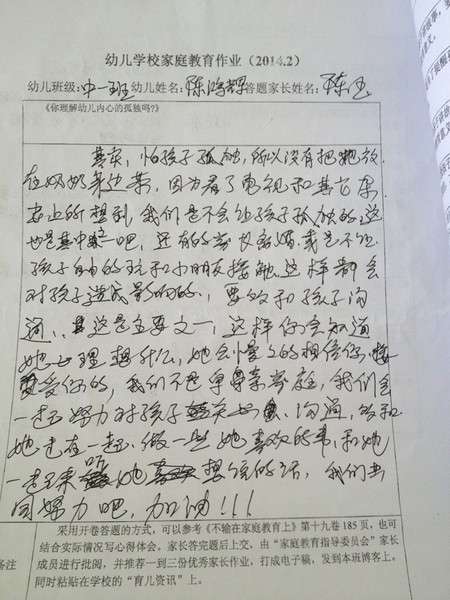 幼儿学校家庭教育作业（2014.2）
幼儿班级：中一班 幼儿姓名：陈鸿辉 答题家长姓名：陈伍
《你理解幼儿内心的孤独吗?》
其实，怕孩子孤独，所以没有把她放
在奶奶身边带，因为看了电视和其它渠
上的 想到，我们是不会让孩子孤独的，这
也是其中 一吧，还有的家长离婚，或是不让
孩子自由的玩和小朋友接触，这样都会
对孩子造成影响的，要多和孩子沟
通，这是主要之一，这样你会知道
她心理想什么，她会慢慢的相信你，接
受你的，我们不是单亲家庭，我们会
一起努力对孩子 沟通，多和
她走在一起，做一些她喜欢的事，和她
一起 听她 想说的话，我们共
同努力吧，加油!!!
备注
采用开卷答题的方式，可以参考《不输在家庭教育上》第十九卷 185 页，也可
结合实际情况写心得体会。家长答完题后上交，由“家庭教育指导委员会”家长
成员进行批阅，并推荐一到三份优秀家长作业，打成电子稿，发到本班博客上。
同时粘贴在学校的“育儿资讯”上。